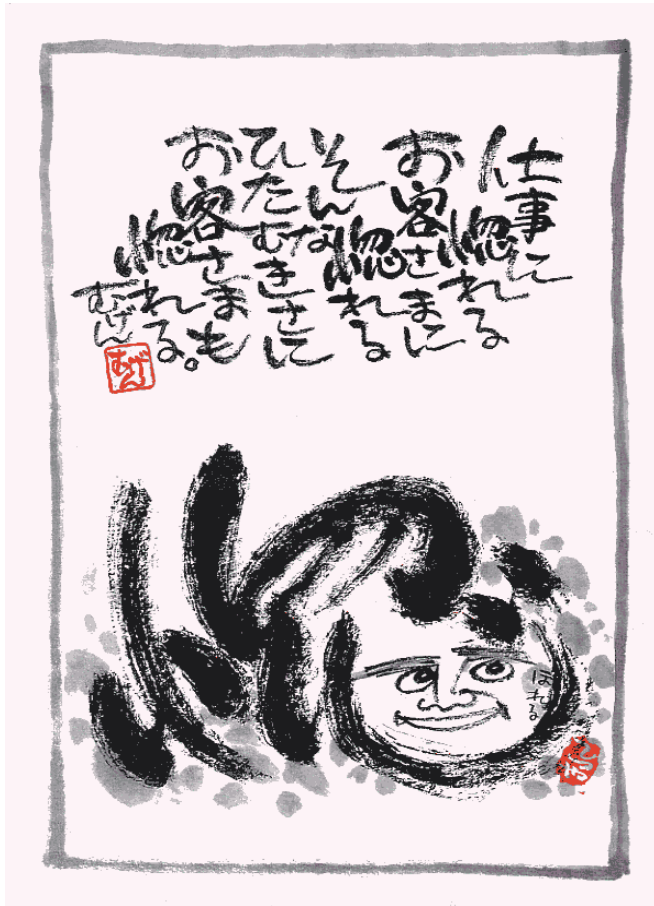 仕事に
惚れる
お客さまに
惚れる
そんな
ひたむきさに
お客さまも
惚れる。
むげん
むげん
ほれる